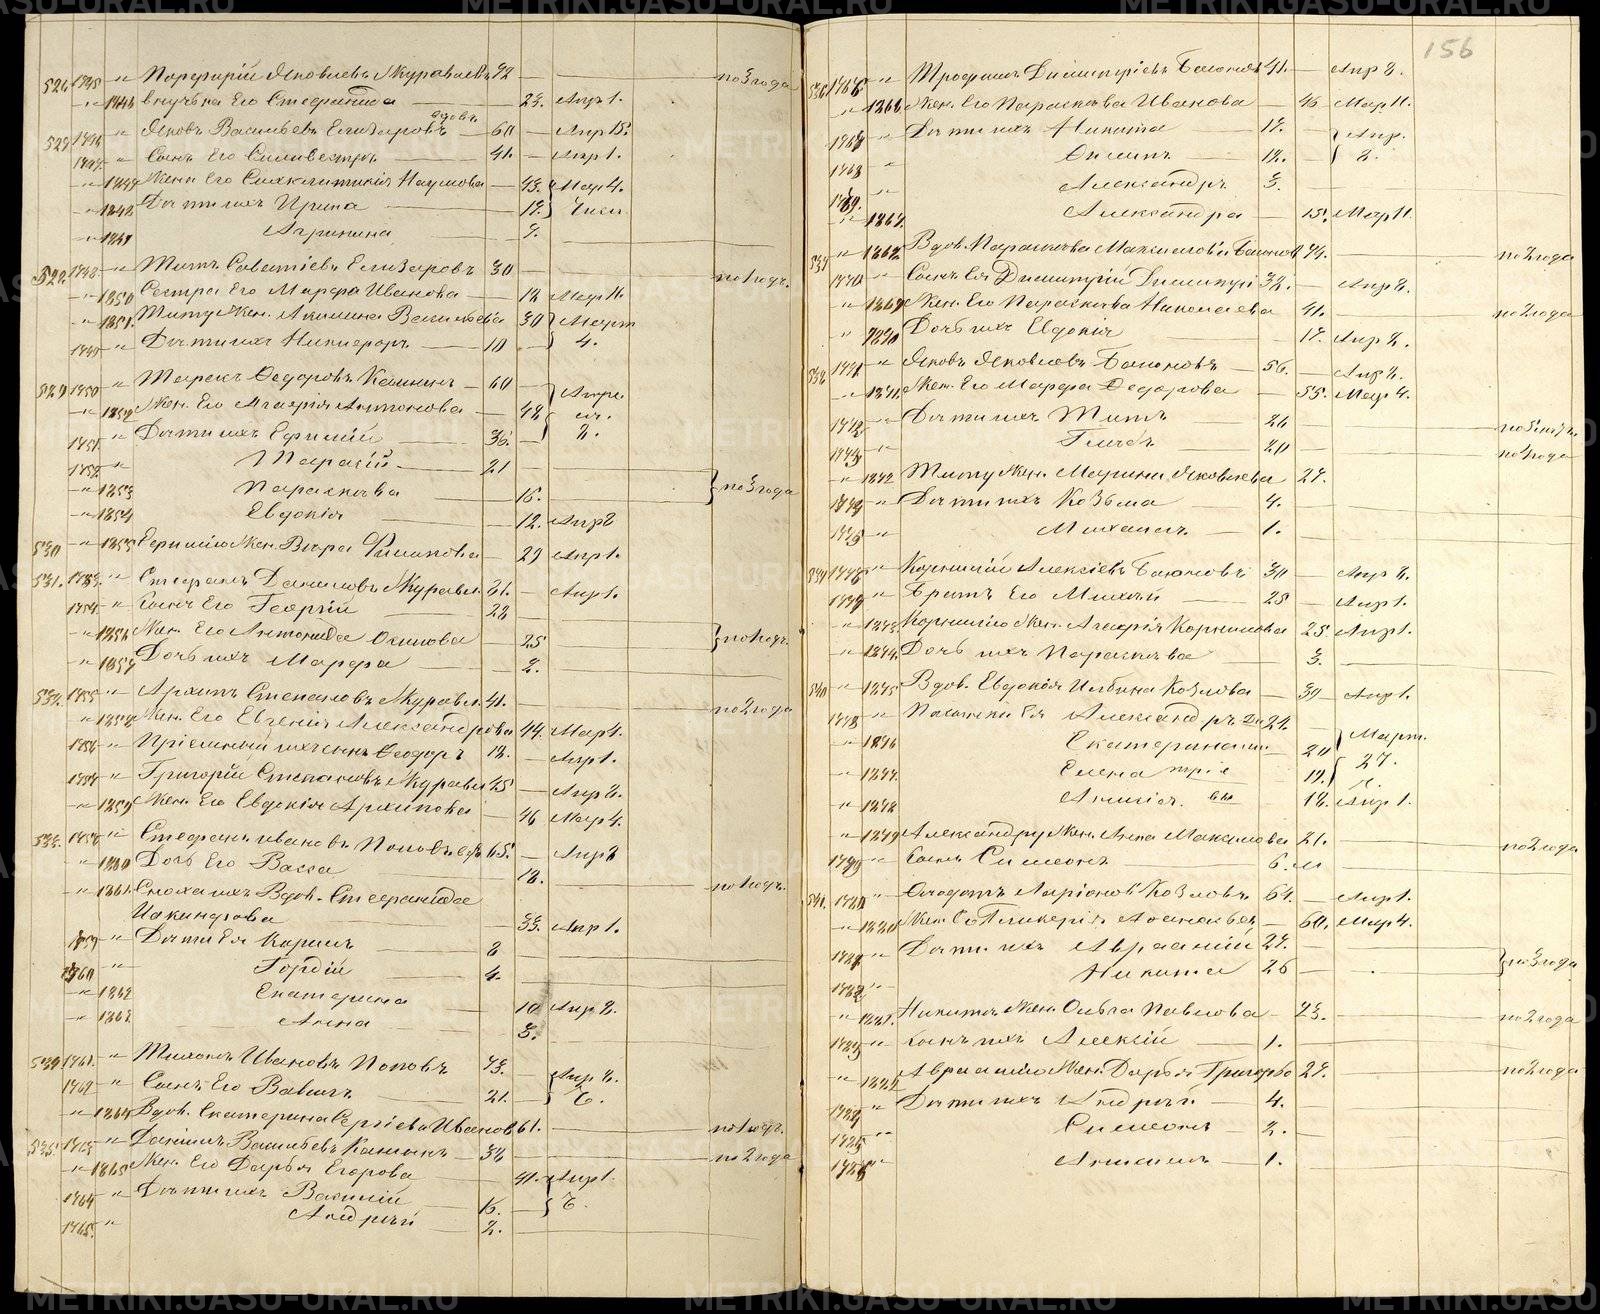 526 1745 " Порфирій Яковлевъ Журавлевъ 72 — по 3 года
" 1846 внучка Его Стефанида — 23. Апр 1.
527 1746 " Яковъ Васильевъ Елизаровъ вдовъ — 60 — Апр 15.
1747 " Сынъ Его Сильвестръ — 41. — Апр 1.
" Жена Его Синклитикія Наумова — 43. Мар 4.
" 1848 Дѣти ихъ Ирина — 17.
" 1849 Агрипина — 7.
528. 1748 " Титъ Саватіевъ Елизаровъ 30 — по 1 году.
" 1850 Сестра Его Марфа Иванова — 18 Мар 11.
" 1851. Титу Жен. Акилина Васильева 30 Март
1749 " Дѣти ихъ Никифоръ — 10 — 4.
529 1750 " Тарасъ Ѳедоровъ Калинин — 60 — Апре
" 1852 Жен. Его Агафія Антонова — 48
1751 " Дѣти ихъ Ефимій — 36. —
1752 " Тарасій — 21
" 1853 Параскева — 16. по 3 года
" 1854 Евдокія — 12. Апр 8
530 " 1855 Ефимію Жен. Вѣра Филипова — 29 Апр 1.
531. 1753. " Стефанъ Даниловъ Журавл. 61. — Апр 1.
1754 " Сынъ Его Георгій — 28
" 1856 Жен. Его Антонида Осипова 25 по 1 году.
" 1857 Дочь ихъ Марфа — 2.
532. 1755 " Архипъ Степановъ Журавл. 41. — по 2 года
" 1858 Жен. Его Евгенія Александрова 44. Мар 4.
1756 " Пріемный ихъ сынъ Ѳеодоръ 18. — Апр 1.
1757 " Григорій Степановъ Журавл 45 — Апр 8.
" 1859 Жен. Его Евдокія Архипова — 46 Мар 4.
533. 1758 " Стефанъ Ивановъ Поповъ вд. 65. — Апр 8
" 1860 Дочь Его Васса — 18.
" 1861. Сноха ихъ Вдов. Стефанида — по 1 году.
Иакинфова — 33. Апр 1.
1759 " Дѣти Ея Карпъ — 8
1760 " Гордій — 4.
" 1862 Екатерина — 10 Апр 8.
" 1863. Анна — 3.
534 1761. " Тихонъ Ивановъ Поповъ 43. — Апр 8.
1762 " Сынъ Его Вавилъ — 21. —
" 1864 Вдов. Екатерина Сергіева Иванов 61. — по 1 году.
535. 1763 " Данилъ Васильевъ Калинин — 38 — по 2 года
" 1865 Жен. Его Дарья Егорова — 41. Апр 1.
1764 " Дѣти ихъ Василій —
1765. " Андрей — 2.
156
536 1766 " Трофимъ Димитріевъ Баюновъ 41. — Апр 8.
" 1866 Жен. Его Параскева Иванова — 46 Мар 11.
1767 " Дѣти ихъ Никита — 17. — Апр.
1768 " Филипъ — 12. — 8.
1769. " Александръ 3.
" 1867. Александра — 15. Мар 11.
537 " 1868 Вдов. Параскева Максимова Баюнов 74. — по 2 года
1770 " Сынъ Ея Димитрій Димитрі 38. — Апр 8.
" 1869 Жен. Его Параскева Николаева — 41. — по 2 года
" 1870 Дочь ихъ Евдокія — 17. Апр 8.
538 1771 " Яковъ Яковлевъ Баюновъ — 56. — Апр 8.
" 1871. Жен. Его Марфа Ѳедорова — 55. Мар 4.
1772 " Дѣти ихъ Титъ — 26
1773 " Глебъ — 20 — по 4 года
" 1872 Титу Жен. Марина Яковлева 27.
1774 " Дѣти ихъ Козьма — 4.
1775 " Михаилъ — 1.
539 1776 " Корнилій Алексіевъ Баюновъ 30 — Апр 8.
1777 " Братъ Его Михей — 25 — Апр 1.
" 1873. Корнилію Жен. Агафія Корнилова 25. Апр 1.
" 1874. Дочь ихъ Параскева — 3.
540 " 1875 Вдов. Евдокія Ильина Козлова — 39 Апр 1.
1778 " Пасынки Ея Александръ Ди 24.
" 1876 Екатерина ми 20 Март.
" 1877. Елена тріе — 19. 27.
" 1878 Анисія. вы — 18. Апр 1.
" 1879 Александру Жен. Анна Макалова 21. — по 2 года
1779 " Сынъ Симеонъ — 6. м
541. 1780 " Ѳеодотъ Ларіоновъ Козловъ 61. — Апр 1.
" 1880 Жен. Его Гликерія Аѳанасьев — 60. Мар 4.
1781 " Дѣти ихъ Авраамій 27. — по 3 года
1782 " Никита 26
" 1881. Никитѣ Жен. Ольга Павлова — 23. — по 2 года
1783 " Сынъ ихъ Алексій — 1.
" 1882 Авраамію Жен. Дарья Григорье 27. — по 2 года
1784 " Дѣти ихъ Андрей — 4.
1785 " Симеонъ — 2.
1786 " Анисимъ — 1.